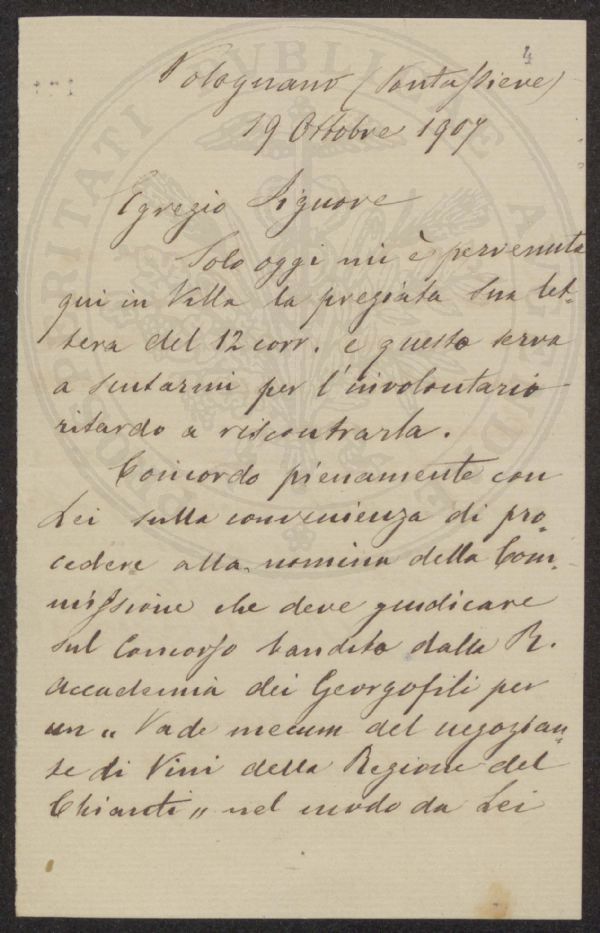 4
Volognano (Pontassieve)
19 Ottobre 1907
Egregio Signore
Solo oggi mi è pervenuta
qui in Villa la pregiata Sua let-
tera del 12 corr. e questo serva
a scusarmi per l'involontario
ritardo a riscontrarla.
Concordo pienamente con
Lei sulla convenienza di pro-
cedere alla nomina della Com-
missione che deve giudicare
sul Concorso bandito dalla R.
Accademia dei Georgofili per
un „ Vade mecum del negozian-
te di Vini della Regione del
Chianti „ nel modo da Lei
PROSPERITATI PUBLICAE AUGENDAE